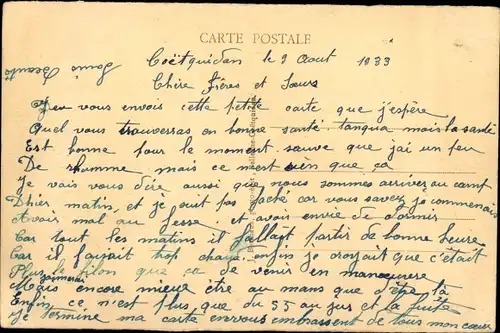 CARTE POSTALE
Coëtquidan le 9 Aout 1933
Chère Frères et Sœurs
Jeu vous envois cette petite carte que j'espère
Quel vous trouveras en bonne santé. tanqua mois la santé
Est bonne pour le moment sauve que jai un peu
De rhumme mais ce n'est rien que ça
Je vais vous dire aussi que nous sommes arrivez au camp
D'hiers matins, et je suit pas faché car vous savez je commencais
Avois mal au fesse et avois envie de dormir
Car tout les matins il fallait partir de bonne heure
Car il faisait trop chaud, enfin je croyait que c'était
Plus le filon que ça de venir en manœuvere
Mais encore mieux etre au mans que d'être là
gaimerais
Enfin ce n'est plus que du 55 au jus et la fuite
Je termine ma carte en vous embrassent de tous mon cœur
Louis